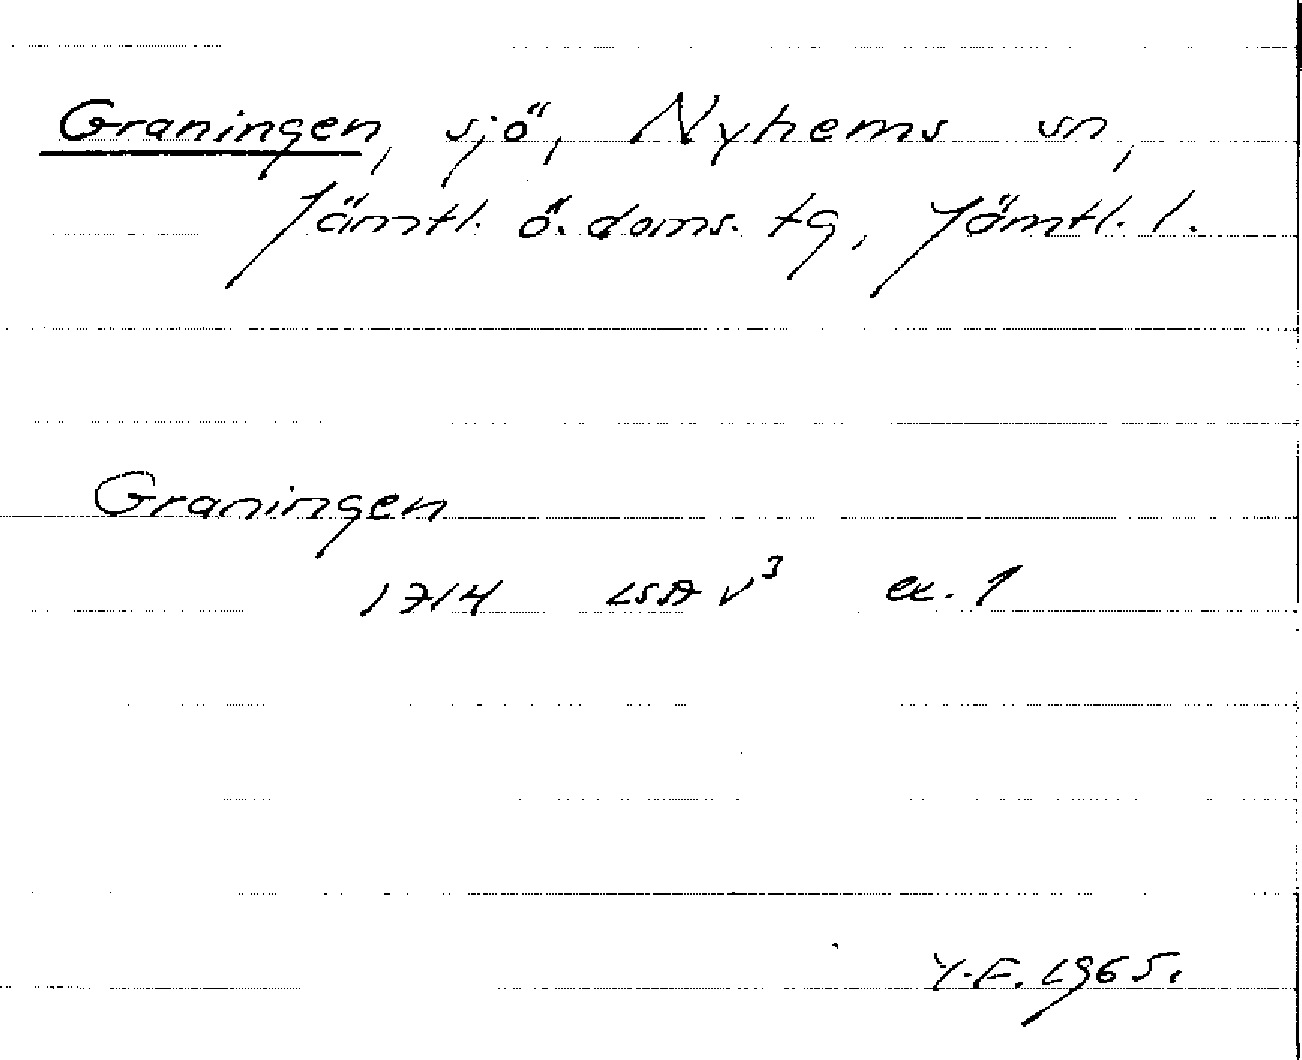 Graningen, sjö, Nyhems sn,
Jämtl. ö. doms. tg, Jämtl. l.
Graningen
1714 LSA V³ ex. 1
Y.F. 1965.